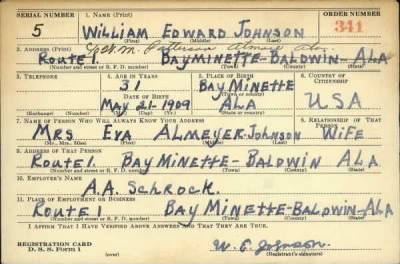 SERIAL NUMBER 1. NAME (Print) ORDER NUMBER
5 WILLIAM EDWARD JOHNSON 341
(First) (Middle) (Last)
2. ADDRESS (Print)
ROUTE 1. BAYMINETTE-BALDWIN-ALA
(Number and street or R. F. D. number) (Town) (County) (State)
3. TELEPHONE 4. AGE IN YEARS 5. PLACE OF BIRTH 6. COUNTRY OF CITIZENSHIP
31 BAY MINETTE
DATE OF BIRTH
MAY 21-1909 ALA USA
(Mo.) (Day) (Yr.)
7. NAME OF PERSON WHO WILL ALWAYS KNOW YOUR ADDRESS 8. RELATIONSHIP OF THAT PERSON
MRS EVA ALMEYER-JOHNSON WIFE
(Mr., Mrs., Miss) (First) (Middle) (Last)
9. ADDRESS OF THAT PERSON
ROUTE 1. BAY MINETTE-BALDWIN ALA.
(Number and street or R. F. D. number) (Town) (County) (State)
10. EMPLOYER'S NAME
A.A. SCHROCK.
11. PLACE OF EMPLOYMENT OR BUSINESS
ROUTE 1 BAY MINETTE-BALDWIN-ALA
(Number and street or R. F. D. number) (Town) (County) (State)
I AFFIRM THAT I HAVE VERIFIED ABOVE ANSWERS AND THAT THEY ARE TRUE.
REGISTRATION CARD
D. S. S. Form 1 (over) W. E. Johnson.
(Registrant's signature)